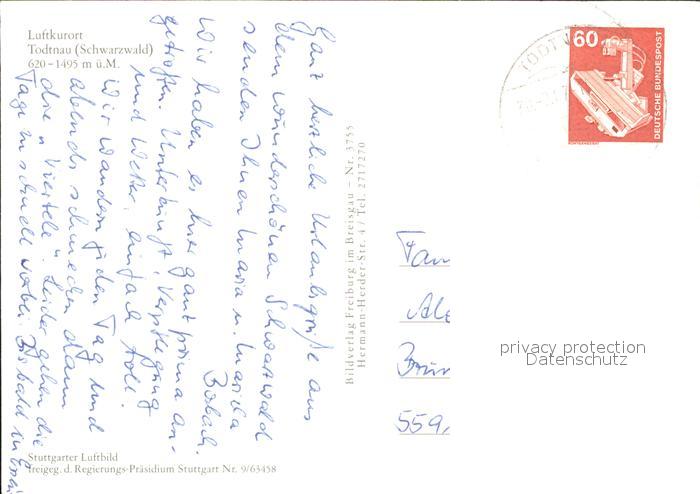 Luftkurort
Todtnau (Schwarzwald)
620-1495 m ü.M.
Ganz herzliche Urlaubsgrüße aus
dem wunderschönen Schwarzwald
senden Ihnen Maria u. Marika
Wir haben es hier ganz prima an-
getroffen. Unterkunft, Verpflegung
und Wetter einfach toll!
Wir wandern jeden Tag und
abends schmecken dann
die "Viertele". Leider gehen die
Tage zu schnell vorbei. Bis bald in
Stuttgarter Luftbild
freigeg. d. Regierungs-Präsidium Stuttgart Nr. 9/63458
Bildverlag Freiburg im Breisgau – Nr. 3755
Hermann-Herder-Str. 4 / Tel. 2717270
TODTN
60
DEUTSCHE BUNDESPOST
RÖNTGENGERÄT
Fam
Ale
559
privacy protection
Datenschutz